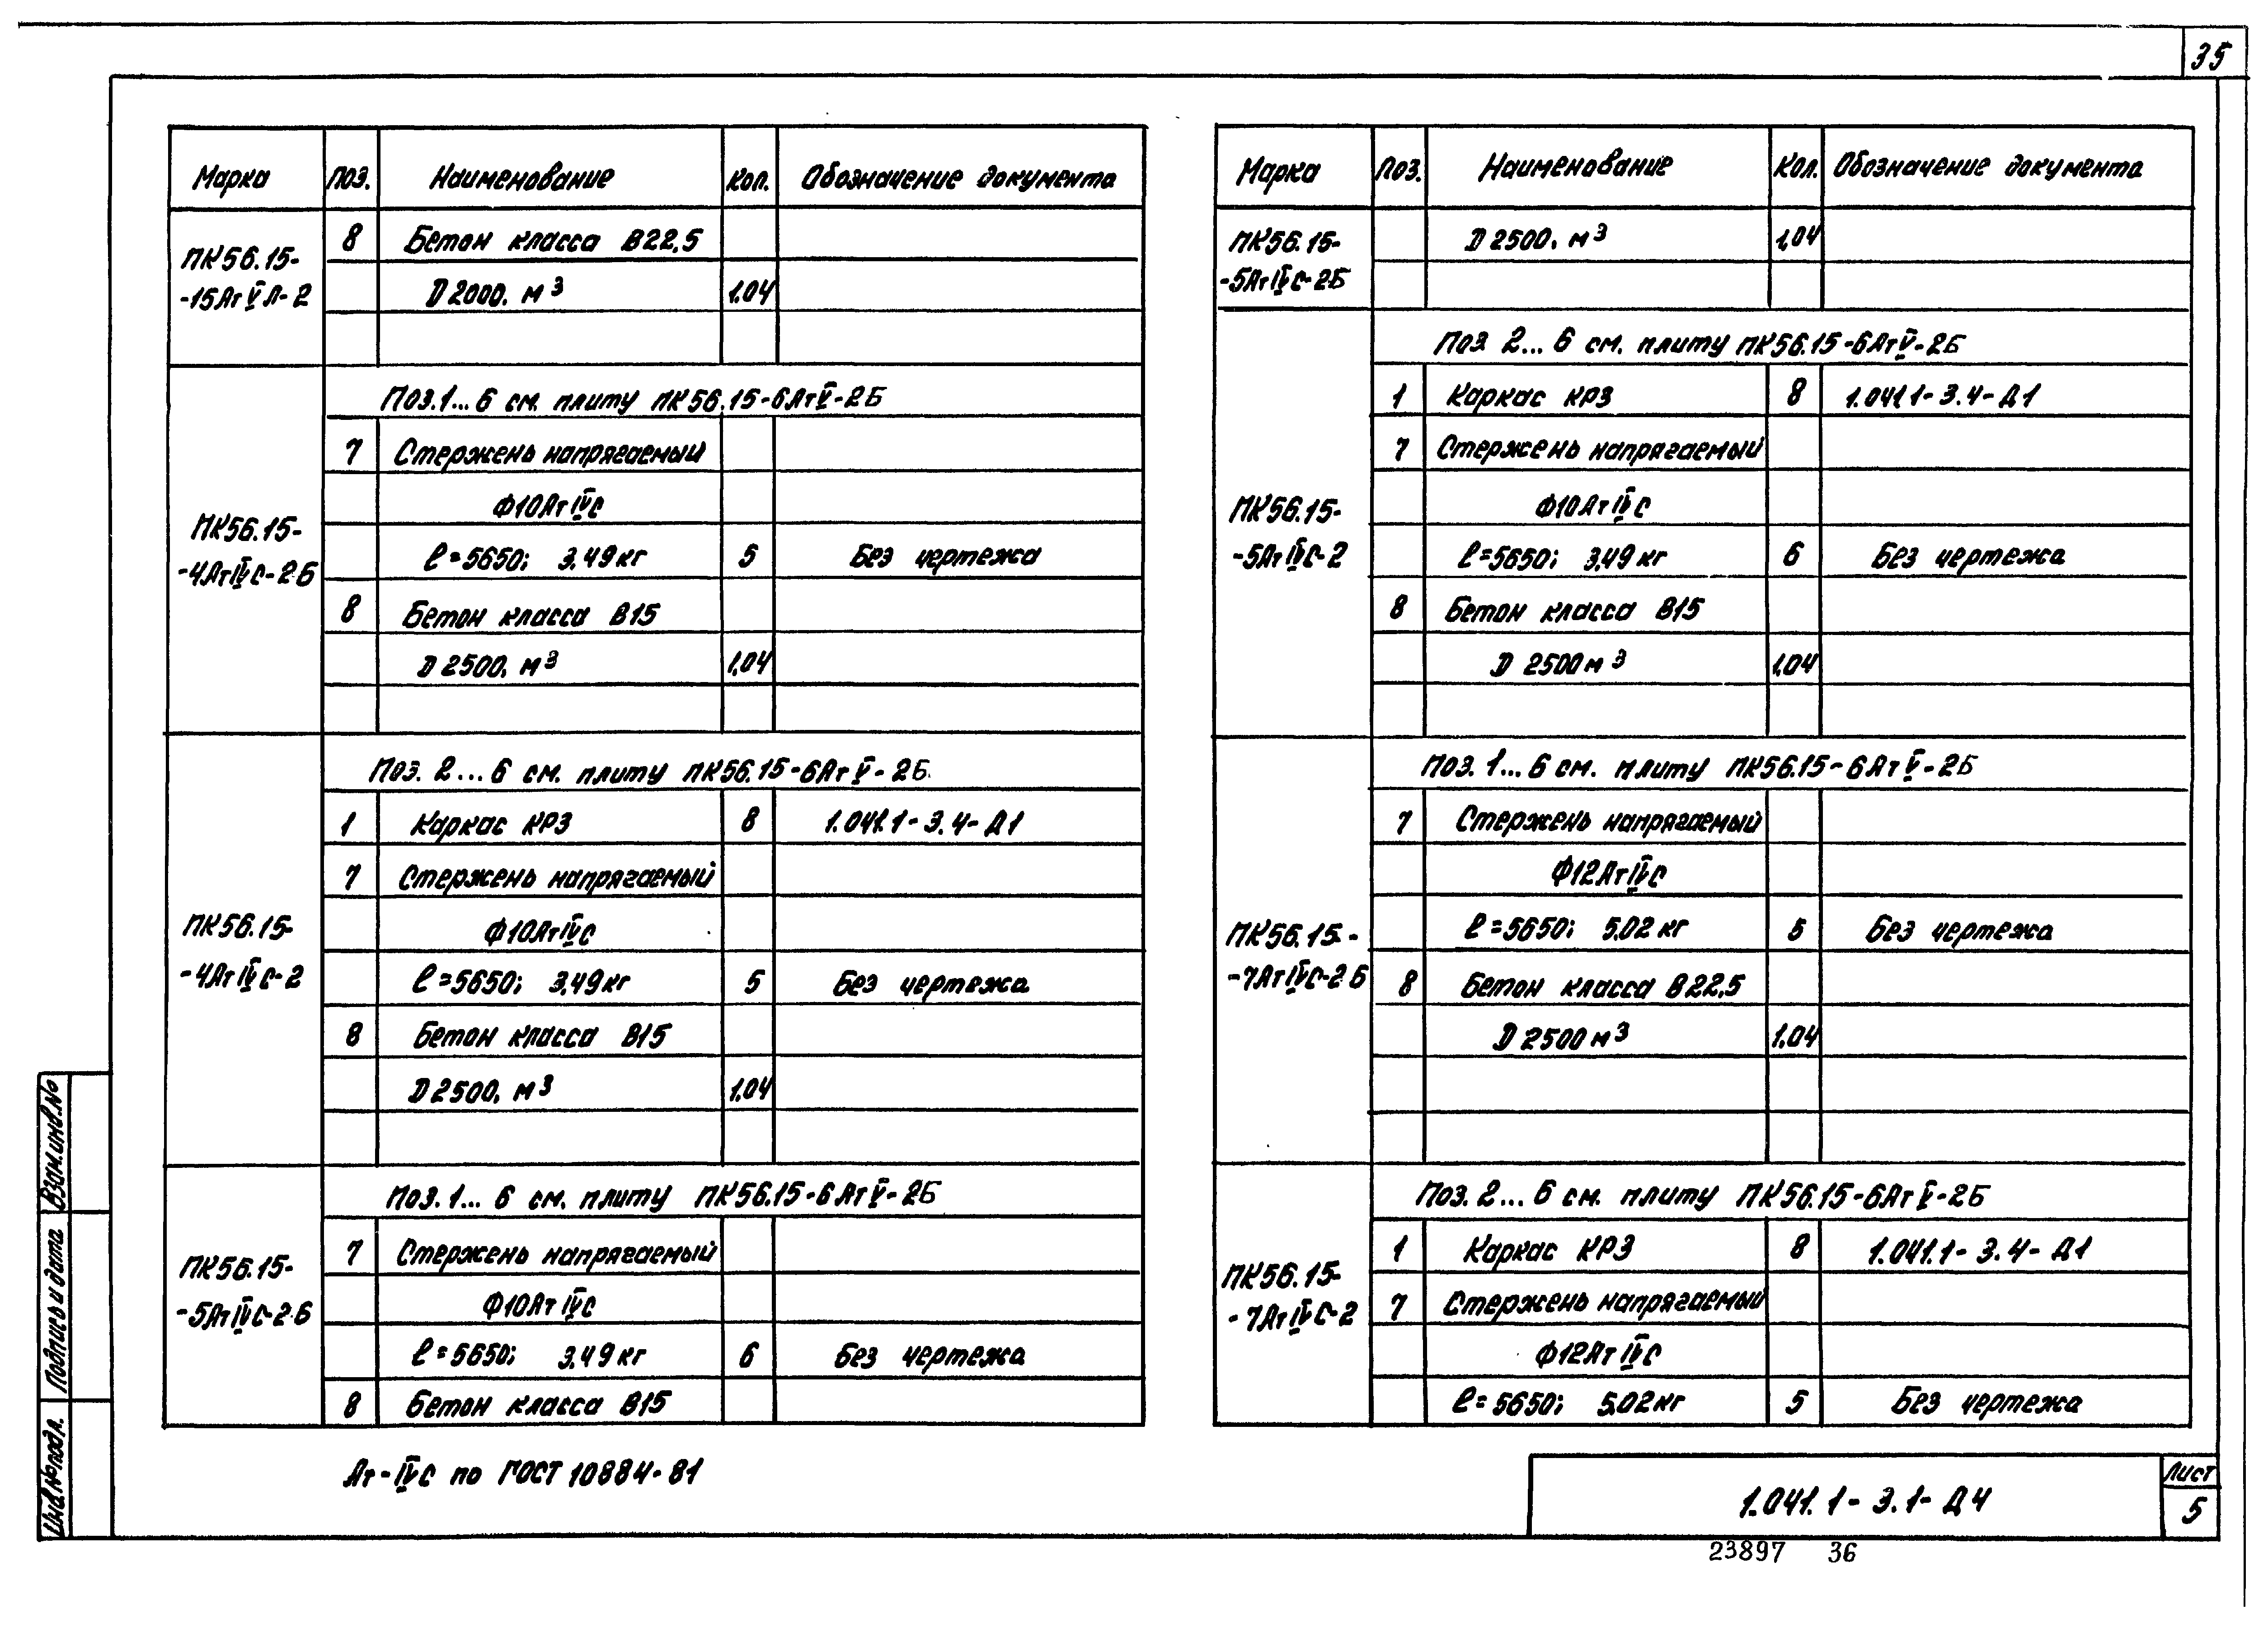 35
Марка Поз. Наименование Кол. Обозначение документа
ПК56.15-
-15АтⅤЛ-2
8 Бетон класса В22,5
D2000, м³ 1,04
Поз.1...6 см. плиту ПК56.15-6АтⅤ-2Б
ПК56.15-
-4АтⅣС-2Б
7 Стержень напрягаемый
Ф10АтⅣС
ℓ=5650; 3,49кг 5 Без чертежа
8 Бетон класса В15
D 2500, м³ 1,04
Поз. 2...6 см. плиту ПК56.15-6АтⅤ-2Б
ПК56.15-
-4АтⅣС-2
1 Каркас КР3 8 1.041.1-3.4-Д1
7 Стержень напрягаемый
Ф10АтⅣС
ℓ=5650; 3,49кг 5 Без чертежа
8 Бетон класса В15
D2500, м³ 1,04
Поз. 1...6 см. плиту ПК56.15-6АтⅤ-2Б
ПК56.15-
-5АтⅣС-2Б
7 Стержень напрягаемый
Ф10АтⅣС
ℓ=5650; 3,49кг 6 Без чертежа
8 Бетон класса В15
Марка Поз. Наименование Кол. Обозначение документа
ПК56.15-
-5АтⅣС-2Б
D 2500, м³ 1,04
Поз 2...6 см. плиту ПК56.15-6АтⅤ-2Б
ПК56.15-
-5АтⅣС-2
1 Каркас КР3 8 1.041.1-3.4-Д1
7 Стержень напрягаемый
Ф10АтⅣС
ℓ=5650; 3,49кг 6 Без чертежа
8 Бетон класса В15
D 2500 м³ 1,04
Поз. 1...6 см. плиту ПК56.15-6АтⅤ-2Б
ПК56.15-
-7АтⅣС-2Б
7 Стержень напрягаемый
Ф12АтⅣС
ℓ=5650; 5,02кг 5 Без чертежа
8 Бетон класса В22,5
D 2500 м³ 1,04
Поз. 2...6 см. плиту ПК56.15-6АтⅤ-2Б
ПК56.15-
-7АтⅣС-2
1 Каркас КР3 8 1.041.1-3.4-Д1
7 Стержень напрягаемый
Ф12АтⅣС
ℓ=5650; 5,02кг 5 Без чертежа
Ат-ⅣС по ГОСТ 10884-81
Взам.инв.№
Подпись и дата
Инв.№подл.
1.041.1-3.1-Д4
Лист
5
23897 36